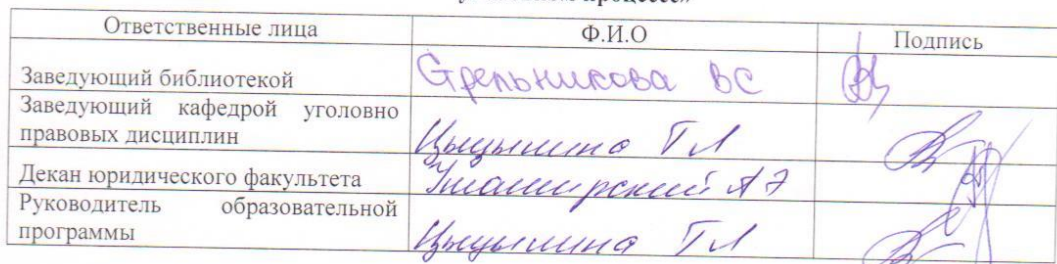 процессе»
Ответственные лица Ф.И.О Подпись
Заведующий библиотекой Стрельникова ВС
Заведующий кафедрой уголовно
правовых дисциплин ТЛ
Декан юридического факультета АЭ
Руководитель образовательной
программы ТЛ